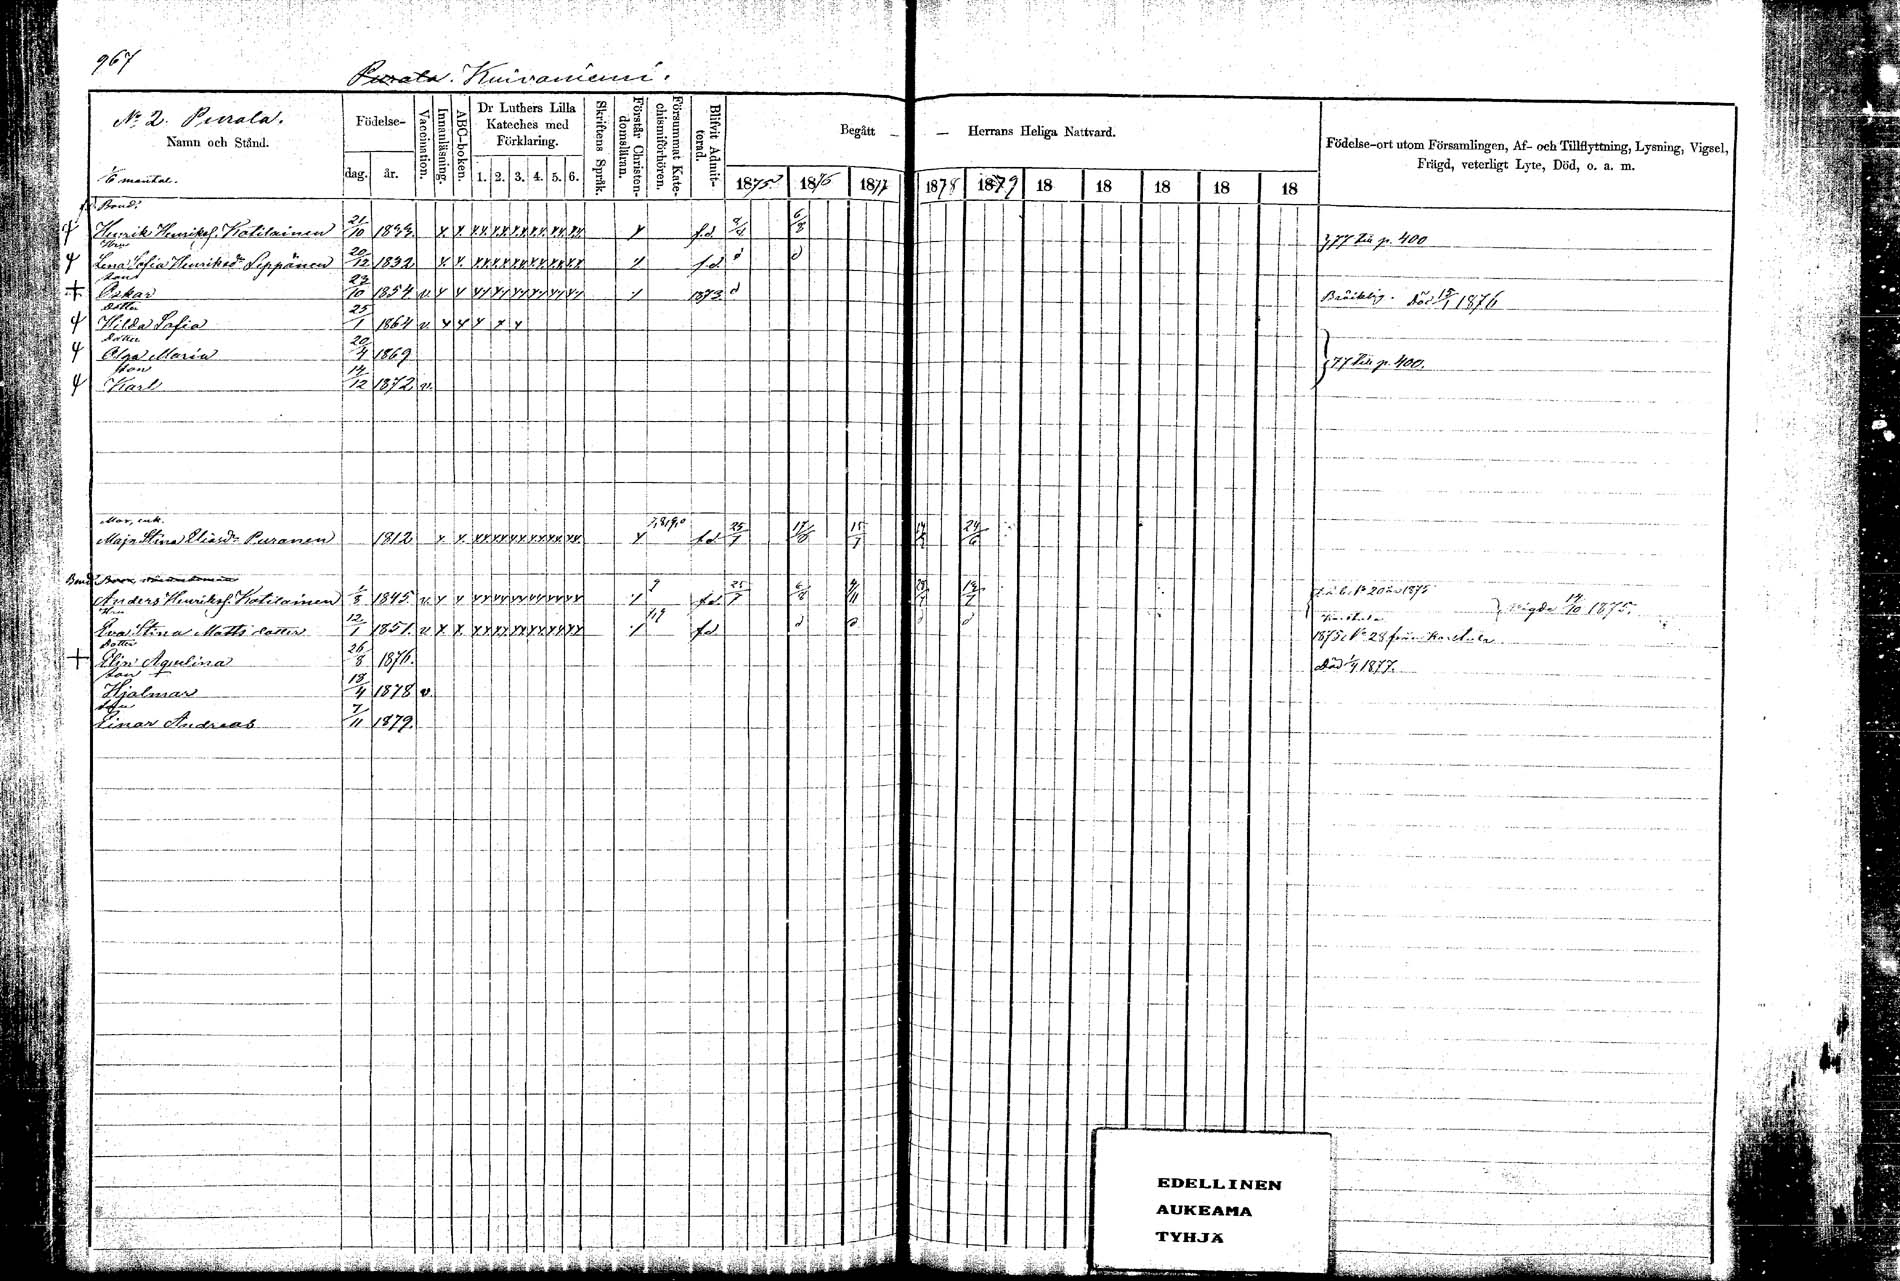 967
Purala. Kuivaniemi.
No 2. Purala.
Namn och Stånd.
1/6 mantal.
Födelse-
dag. år.
Vaccination.
Innanläsning.
ABC-boken.
Dr Luthers Lilla
Kateches med
Förklaring.
1. 2. 3. 4. 5. 6.
Skriftens Språk.
Förstår Christen-
domsläran.
Försummat Kate-
chismiförhören.
Blifvit Admit-
terad.
Begått — — Herrans Heliga Nattvard.
1875 1876 1877 1878 1879 18 18 18 18 18
Födelse-ort utom Församlingen, Af- och Tillflyttning, Lysning, Vigsel,
Frägd, veterligt Lyte, Död, o. a. m.
Bond:
Henrik Henriksf. Kotilainen 21/10 1833 x x xx xx xx xx xx xx x f.d. 6/8 77 till p. 400
Hru
Lena Sofia Henriksdr Leppänen 20/12 1832 x. x. xx xx xx xx xx xx f.d. d d
Son
Oskar 23/10 1854 v. 1873 d Bräcklig. Död 15/1 1876
Dotter
Hilda Sofia 25/1 1864 v.
Dotter
Olga Maria 20/4 1869 77 till p. 400.
Son
Karl 14/12 1872 v.
Mor, enk.
Maja Stina Eliasdr Puranen 1812 x x. f.d. 25/7 15/7 24/6
Bond
Anders Henriksf. Kotilainen 1/8 1845. v. f.d. 25/7 6/8 No 20 1875 vigde 14/10 1875.
Hru
Eva Stina Matts dotter 12/1 1851. v. x. x. f.d. d d d d Karstula
1875 No 28 från Karstula
Dotter
Elin Aqvelina 26/8 1876. Död 1/4 1877.
Son
Hjalmar 18/4 1878 v.
Son
Einar Andreas 7/11 1879.
EDELLINEN
AUKEAMA
TYHJÄ